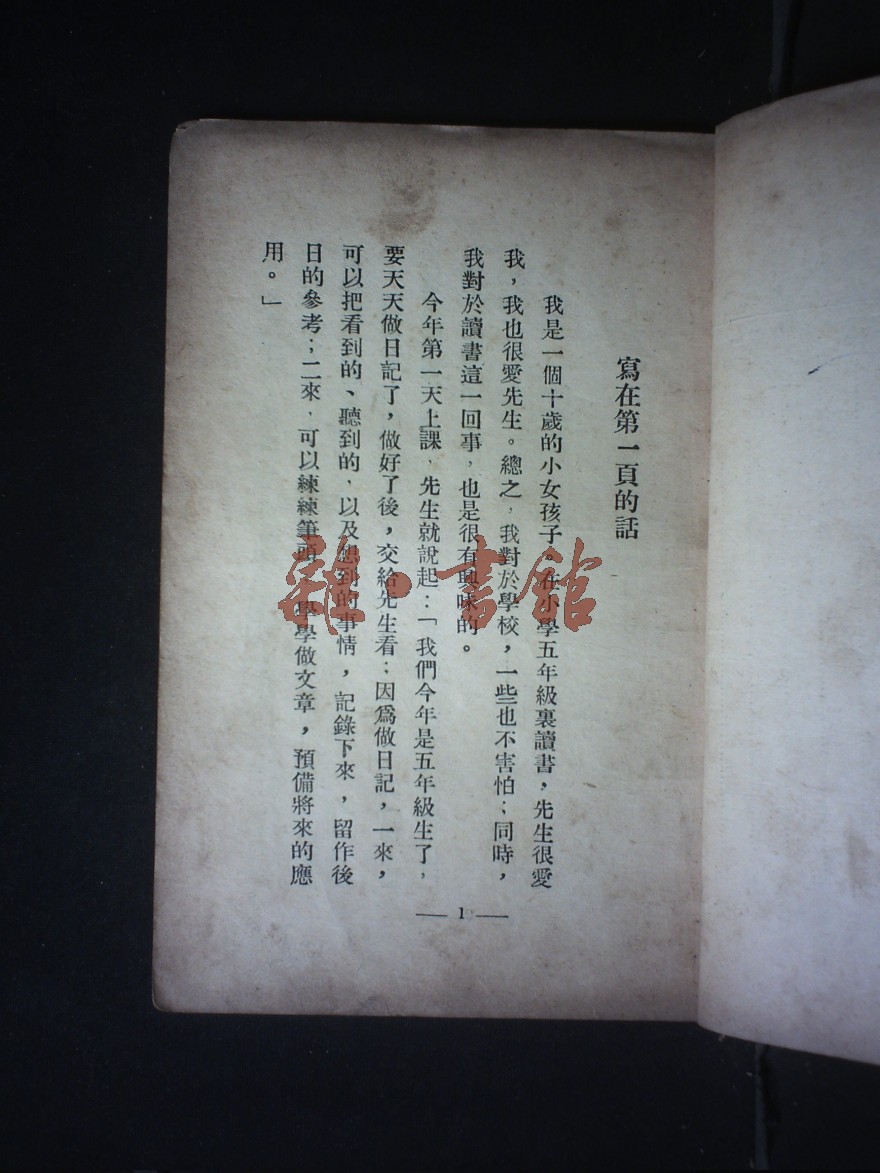 寫在第一頁的話
我是一個十歲的小女孩子。在小學五年級裏讀書，先生很愛
我，我也很愛先生。總之，我對於學校，一些也不害怕；同時，
我對於讀書這一回事，也是很有興味的。
今年第一天上課，先生就說起：「我們今年是五年級生了，
要天天做日記了，做好了後，交給先生看；因爲做日記，一來，
可以把看到的、聽到的，以及想到的事情，記錄下來，留作後
日的參考；二來，可以練練筆頭，學學做文章，預備將來的應
用。」
— 1 —
雜·書館